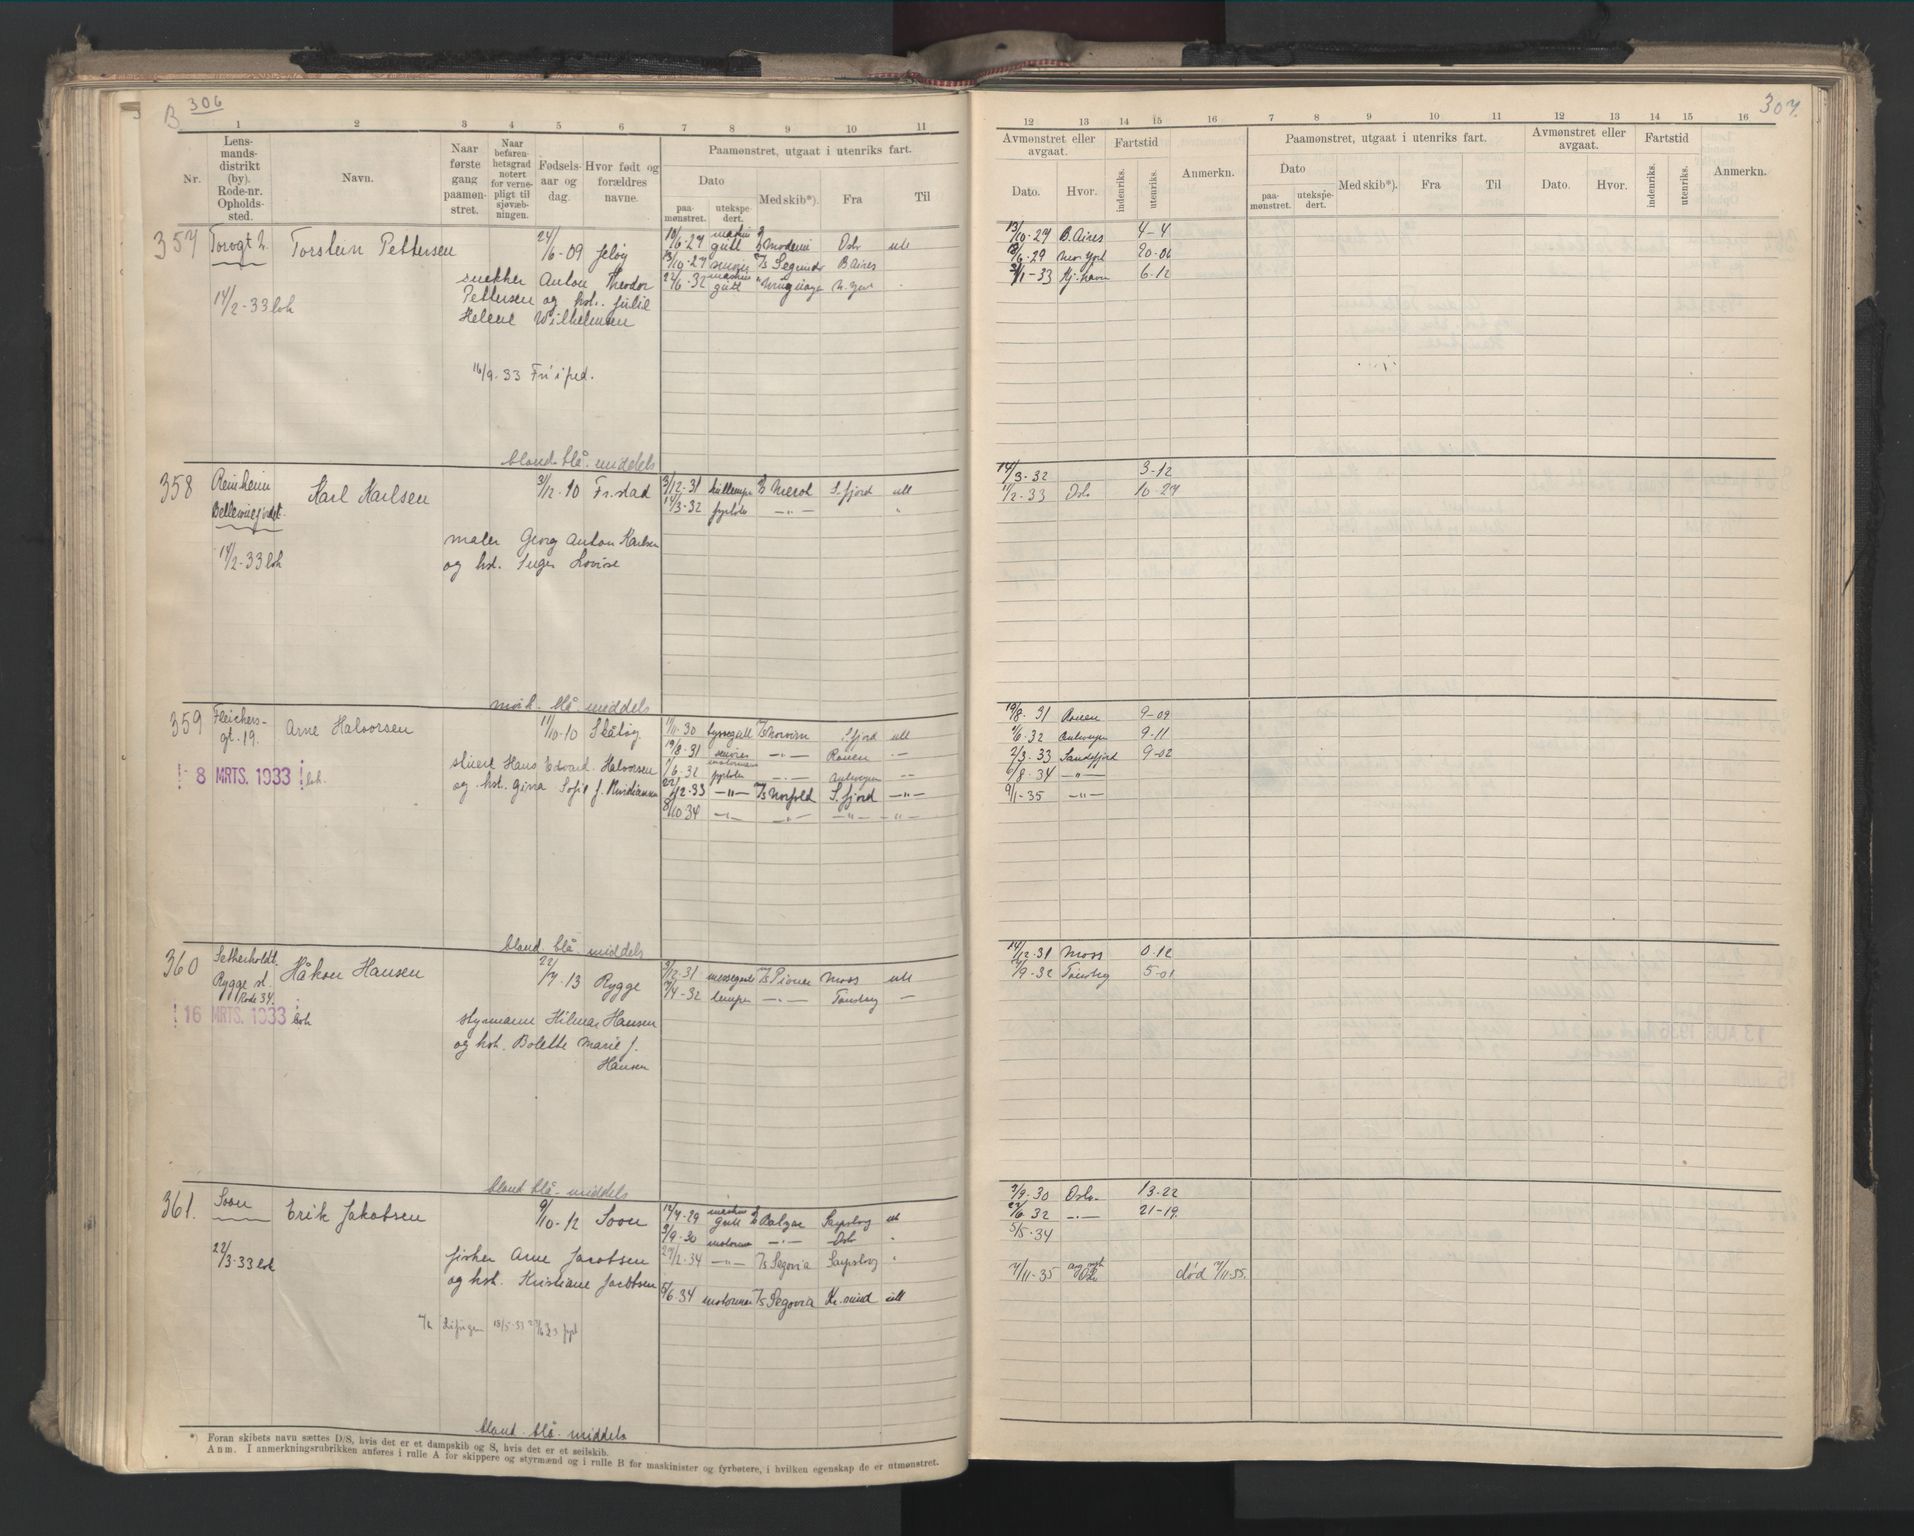 B 306
307.
1 2 3 4 5 6 7 8 9 10 11
12 13 14 15 16 7 8 9 10 11 12 13 14 15 16
Nr.
Lens-
mands-
distrikt
(by).
Rode-nr.
Opholds-
sted.
Navn.
Naar
første
gang
paamøn-
stret.
Naar
befaren-
hetsgrad
notert
for verne-
pligt til
sjøvæb-
ningen.
Fødsels-
aar og
dag.
Hvor født og
forældres
navne.
Paamønstret, utgaat i utenriks fart.
Dato
paa-
mønstret.
utekspe-
dert.
Med skib*).
Fra
Til
Avmønstret eller
avgaat.
Dato.
Hvor.
Fartstid
indenriks.
utenriks.
Anmerkn.
Paamønstret, utgaat i utenriks fart.
Dato
paa-
mønstret.
utekspe-
dert.
Med skib*).
Fra
Til
Avmønstret eller
avgaat.
Dato.
Hvor.
Fartstid
indenriks.
utenriks.
Anmerkn.
357 Torvgt 2. Torstein Pettersen 24/6-09 Jeløy
snekker Anton Theodor
Pettersen og hst. Julie
Helene Wilhelmsen
14/2-33 loh
16/9-33 Fri i fred.
blond. blå. middels
gutt Modemi Oslo utt
13/10-27 Segundo B.Aires
22/6-32 gutt Uruguay N.York
13/10-27 B.Aires 4-4
6-29 New York 20-06
1-33 Kj.havn 6-12
358 Reinheim Karl Karlsen 31/12-10 Fr.stad
Bellevuejordet.
maler Georg Anton Karlsen
og hst. Inger Lovise
14/2-33 loh
mørk. blå. middels
3/12-31 Merot S.fjord utt
14/3-32 fyrbøter —"— "
14/3-32 3-12
11/2-33 Oslo 10-27
359 Fleichers- Arne Halvorsen 11/10-10 Skåtøy
gt. 19.
stuert Hans Edvard Halvorsen
og hst. Gina Sofie f. Kristiansen
8 MRTS. 1933 loh.
blond. blå. middels
11/11-30 S.fjord utt
19/8-31 —"— Rouen —"—
1/6-32 fyrbøter —"— Antwerpen —"—
22/12-33 —"— T/s Norfold S.fjord —"—
8/10-34 —"— —"— —"— —"—
19/8-31 Rouen 9-09
1/6-32 Antwerpen 9-11
2/3-33 Sandefjord 9-02
6/8-34 —"—
9/1-35 —"—
360 Håkon Hansen 22/7-13 Rygge
Rygge st.
Rode 34.
styrmann Hilmar Hansen
og hst. Bolette Marie f.
Hansen
16 MRTS. 1933 loh
blond. blå. middels
3/12-31 messegutt Pioner Moss utt
7/4-32 lemper —"— Tønsberg —
14/12-31 Moss 0-12
7/9-32 Tønsberg 5-01
361. Soon Erik Jakobsen 9/10-12 Soon
fisker Arne Jacobsen
og hst. Kristiane Jacobsen
22/3-33 loh
blond. blå. middels
12/7-29 gutt Balzac Sarpsborg utt
3/9-30 motormann —"— Oslo "
27/2-34 —"— T/s Segovia Sarpsborg "
5/6-34 motormann T/s Segovia Kr.sund utt
3/9-30 Oslo 13-22
22/6 32 —"— 21-19.
5/5-34
7/11-35 Oslo død 7/11-35.
*) Foran skibets navn sættes D/S, hvis det er et dampskib og S, hvis det er et seilskib.
Anm. I anmerkningsrubrikken anføres i rulle A for skippere og styrmænd og i rulle B for maskinister og fyrbøtere, i hvilken egenskap de er utmønstret.